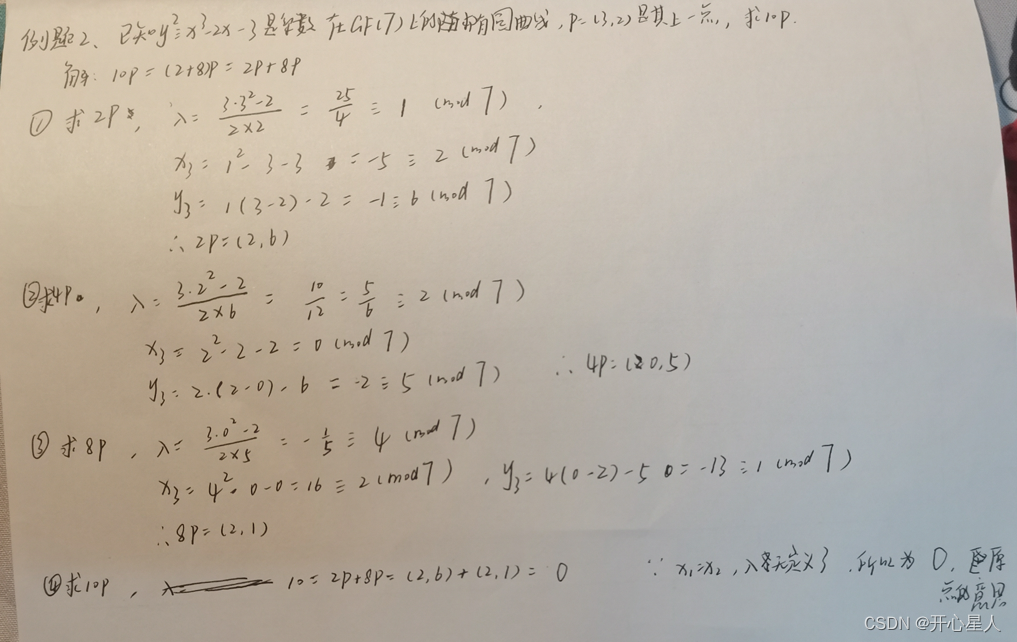 例题2、已知y²≡x³-2x-3是系数在GF(7)上的椭圆曲线,P=(3,2)是其上一点,求10P.
解: 10P=(2+8)P=2P+8P
① 求2P, λ= (3·3²-2)/(2×2) = 25/4 ≡ 1 (mod 7).
x₃= 1²-3-3 = -5 ≡ 2 (mod 7)
y₃= 1(3-2)-2 = -1≡6 (mod 7)
∴ 2P=(2,6)
②求4P, λ= (3·2²-2)/(2×6) = 10/12 = 5/6 ≡ 2 (mod 7)
x₃= 2²-2-2=0 (mod 7)
y₃= 2·(2-0)-6 = -2≡5 (mod 7) ∴ 4P=(0,5)
③ 求8P, λ= (3·0²-2)/(2×5) = -1/5 ≡ 4 (mod 7)
x₃= 4²-0-0=16 ≡ 2(mod 7), y₃=4(0-2)-5 = -13 ≡1 (mod 7)
∴8P=(2,1)
④求10P, 10=2P+8P=(2,6)+(2,1)= 0 ∵ x₁=x₂, λ无定义了,所以为0,原
点的意思
CSDN @开心星人